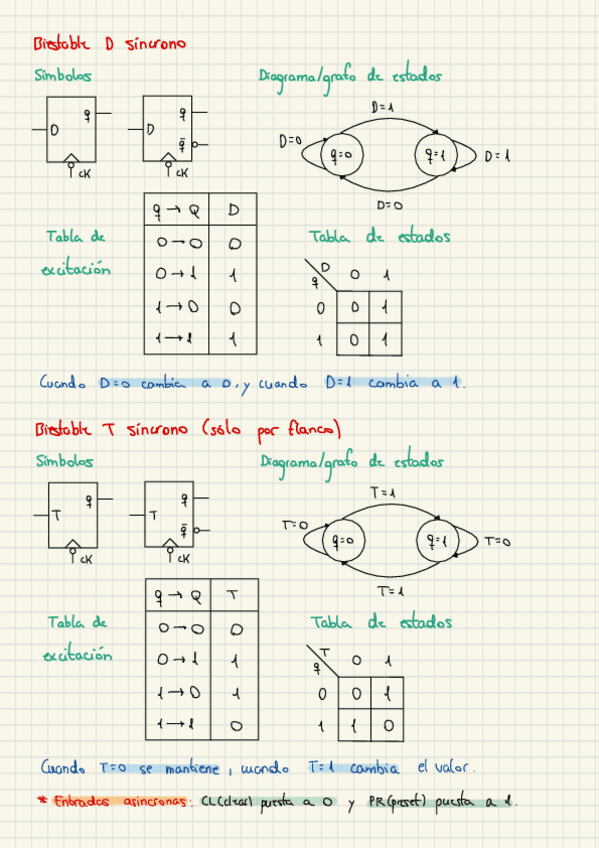 Biestable D síncrono
Símbolos
Diagrama/grafo de estados
D q CK
D q q̅ CK
D=0 q=0 D=1 q=1 D=1
D=0
Tabla de excitación
q → Q D
0 → 0 0
0 → 1 1
1 → 0 0
1 → 1 1
Tabla de estados
D
q 0 1
0 0 1
1 0 1
Cuando D=0 cambia a 0, y cuando D=1 cambia a 1.
Biestable T síncrono (sólo por flanco)
Símbolos
Diagrama/grafo de estados
T q CK
T q q̅ CK
T=0 q=0 T=1 q=1 T=0
T=1
Tabla de excitación
q → Q T
0 → 0 0
0 → 1 1
1 → 0 1
1 → 1 0
Tabla de estados
T
q 0 1
0 0 1
1 1 0
Cuando T=0 se mantiene, cuando T=1 cambia el valor.
* Entradas asíncronas: CL(clear) puesta a 0 y PR(preset) puesta a 1.